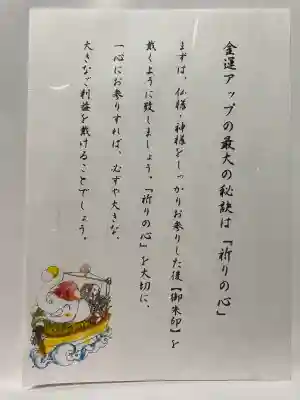 金運アップの最大の秘訣は『祈りの心』
まずは、仏様・神様をしっかりお参りした後【御朱印】を
戴くように致しましょう。『祈りの心』を大切に、
一心にお参りすれば、必ずや大きな、
大きなご利益を戴けることでしょう。